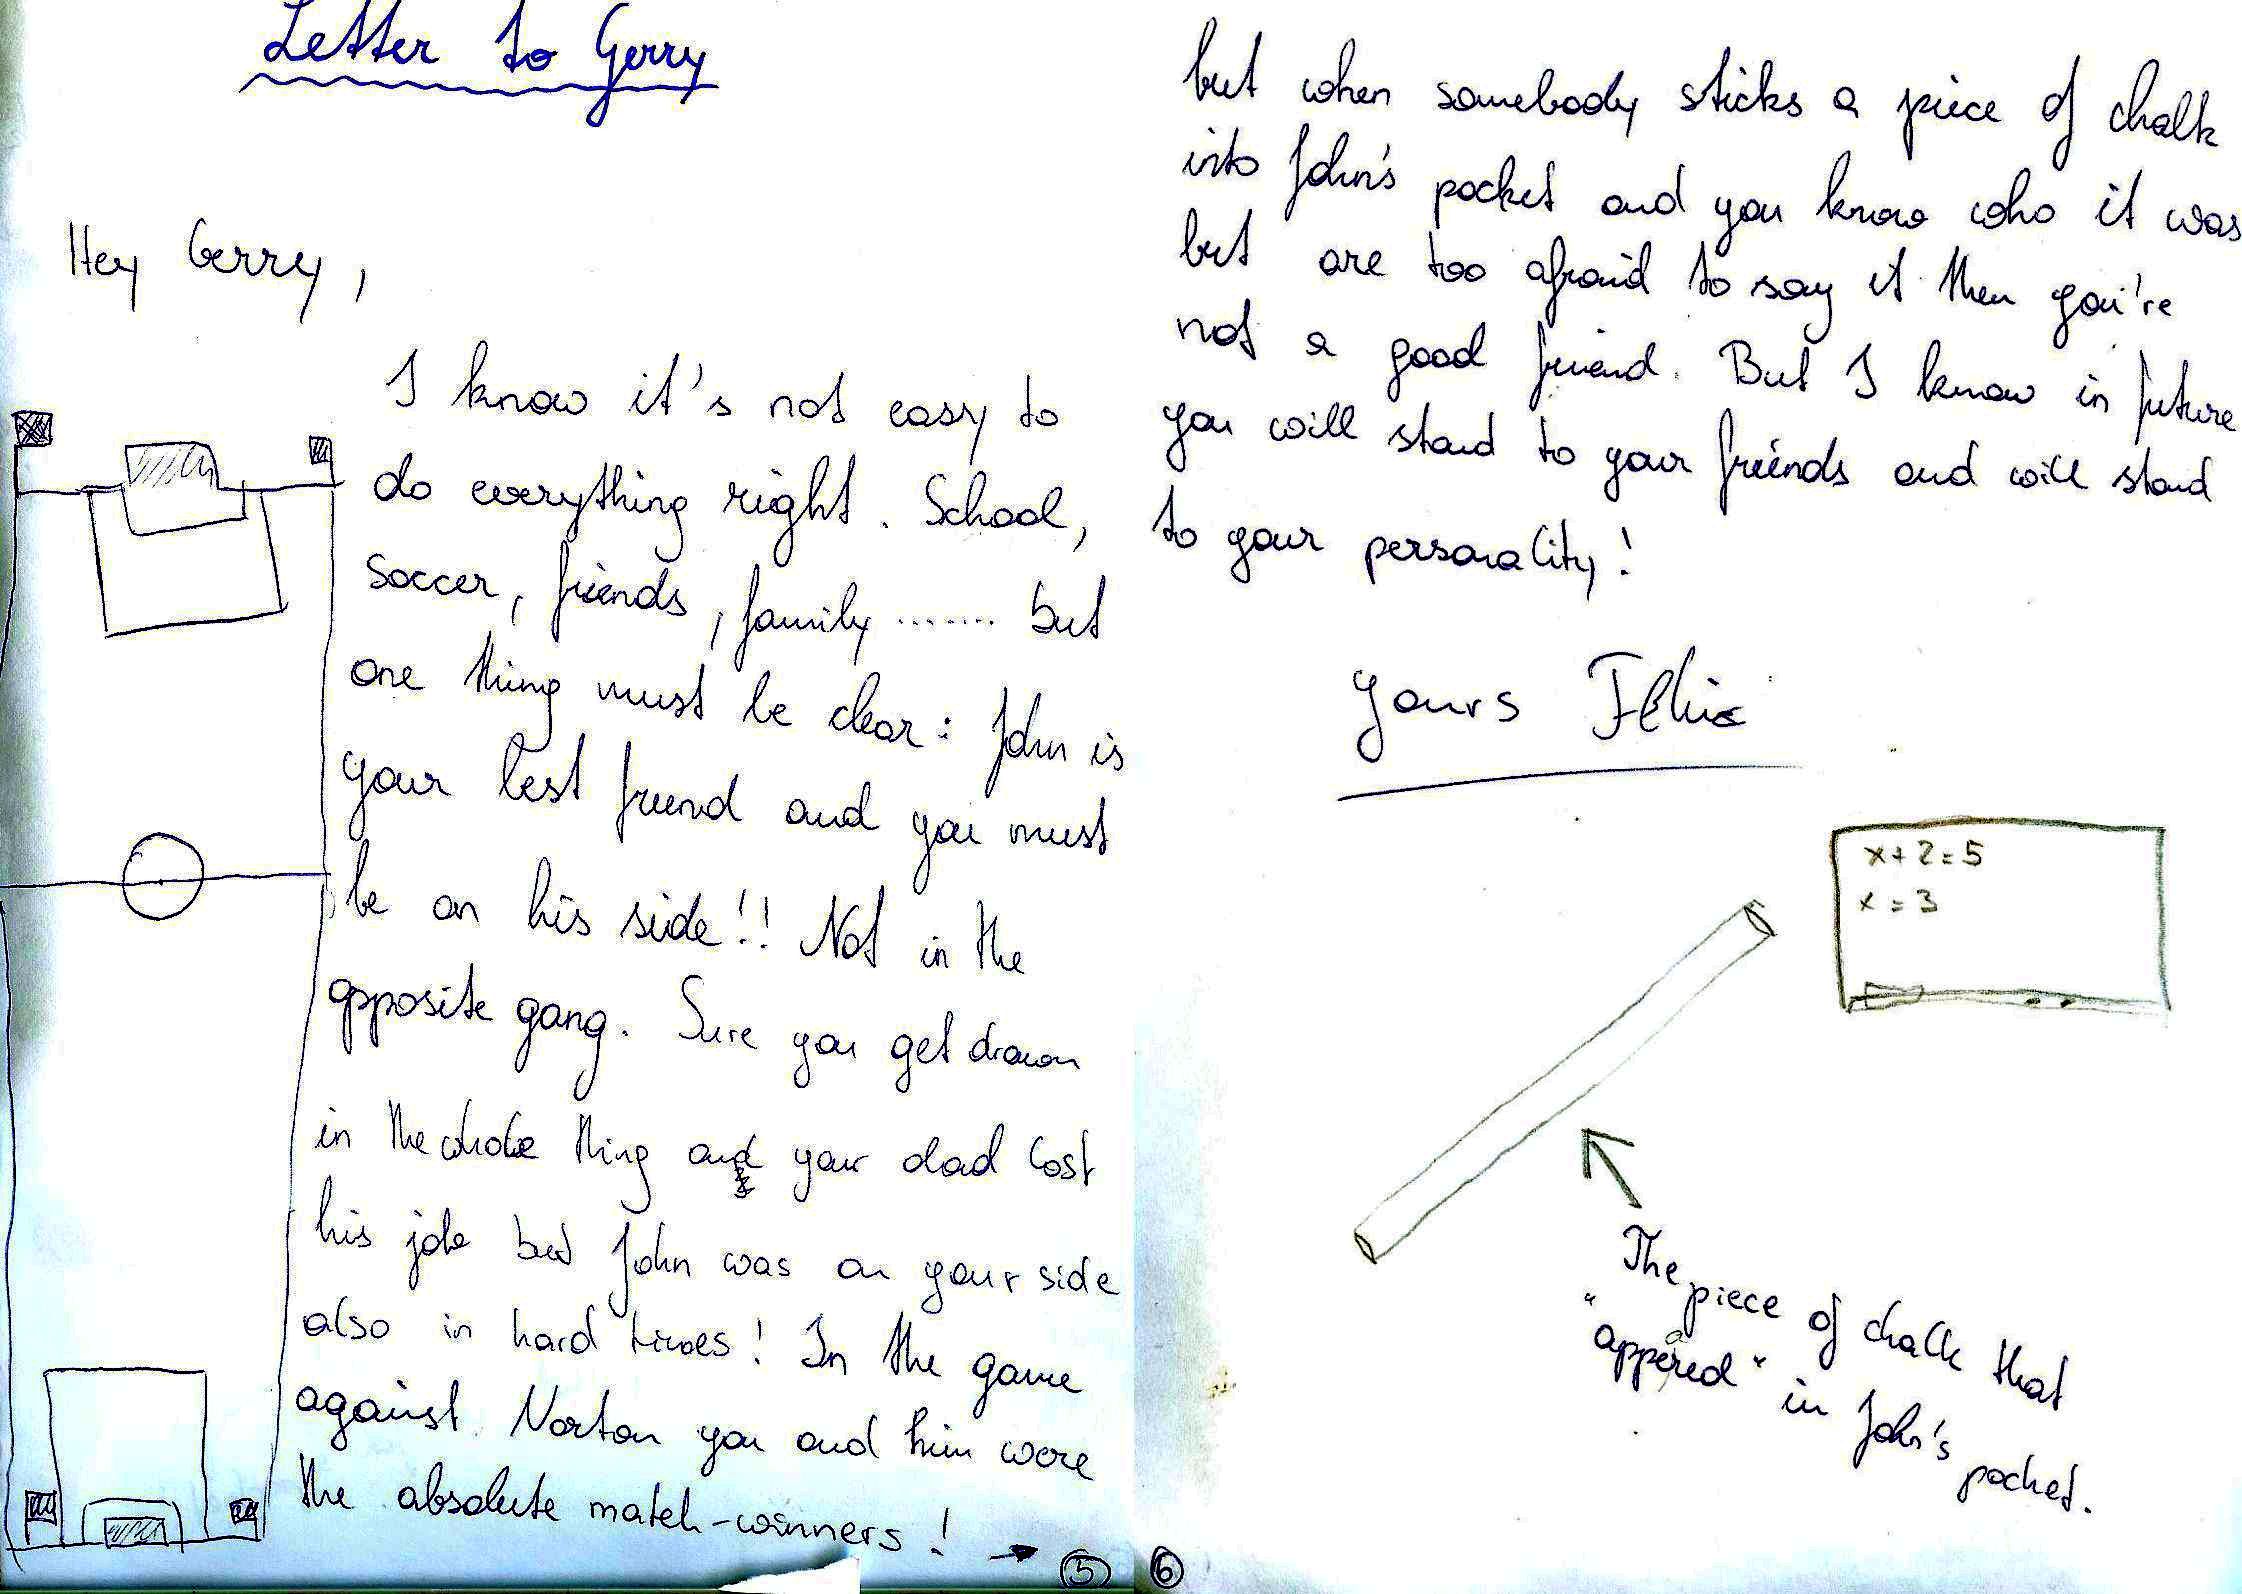 Letter to Gerry
Hey Gerry,
I know it's not easy to
do everything right. School,
soccer, friends, family ....... but
one thing must be clear: John is
your best friend and you must
be on his side!! Not in the
opposite gang. Sure you get drawn
in the whole thing and your dad lost
his job but John was on your side
also in hard times! In the game
against Norton you and him were
the absolute match-winners! →
5
but when somebody sticks a piece of chalk
into John's pocket and you know who it was
but are too afraid to say it then you're
not a good friend. But I know in future
you will stand to your friends and will stand
to your personality!
yours Felix
x+2=5
x=3
The piece of chalk that
"appeared" in John's
pocket.
6